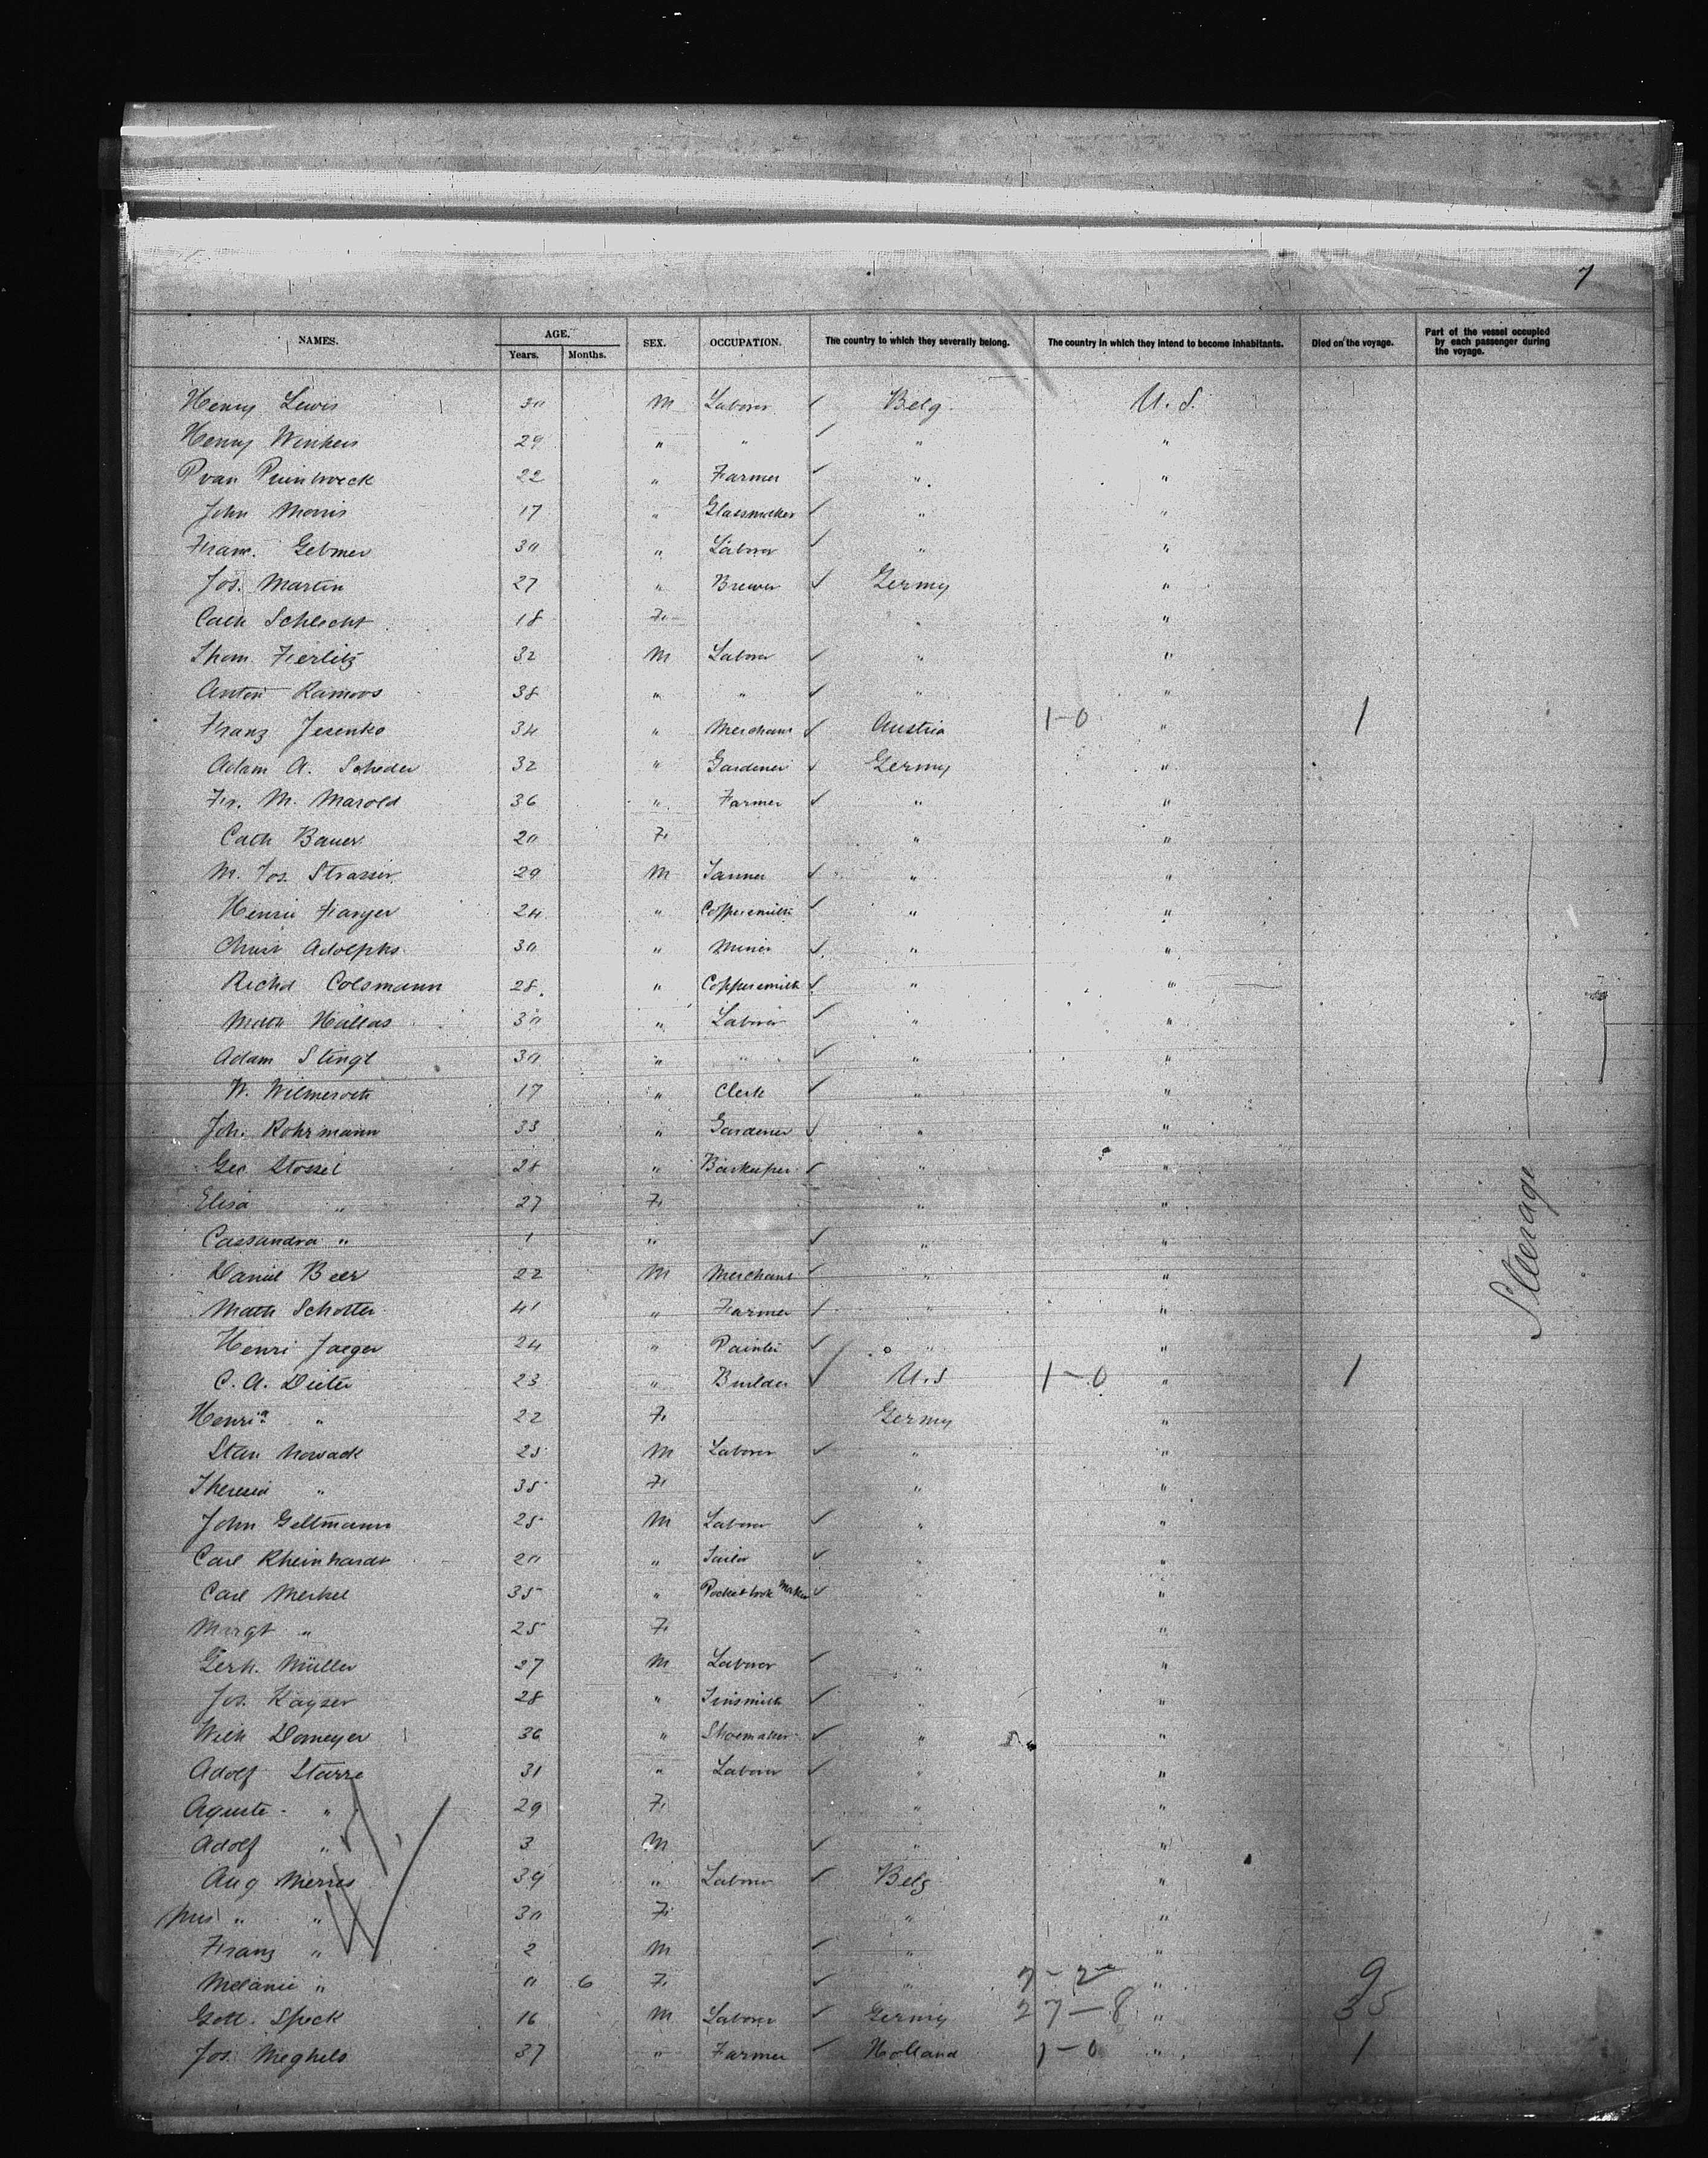 7
NAMES. AGE. Years. Months. SEX. OCCUPATION. The country to which they severally belong. The country in which they intend to become inhabitants. Died on the voyage. Part of the vessel occupied by each passenger during the voyage.
Henry Lewis 30 M Laborer ✓ Belg. U.S.
Henry 29 " " ✓ " "
P van 22 " Farmer ✓ " "
John Morris 17 " Glassmaker ✓ " "
30 " Laborer ✓ " "
Jos. Martin 27 " Brewer ✓ Germy "
Cath Schlecht 18 F. " "
32 M Laborer ✓ " "
Anton Ramoos 38 " " ✓ " "
Franz Jesenko 34 " Merchant ✓ Austria 1-0 " 1
Adam A. Scheder 32 " Gardener ✓ Germy "
Fr. M. Marold 36 " Farmer ✓ " "
Cath Bauer 20 F. " "
M. Jos. Strasser 29 M Tanner ✓ " "
Henri 24 " Coppersmith ✓ " "
Adolphs 30 " Miner ✓ " "
Richd Colsmann 28 " Coppersmith ✓ " "
Math Hallas 30 " Laborer ✓ " "
Adam Stingl 30 " " ✓ " "
W. Wilmeroth 17 " Clerk ✓ " "
Joh. Rohrmann 33 " Gardener ✓ " "
Geo Stossel 28 " Barkeeper ✓ " "
Elisa " 27 F. " "
Cassandra " 1 " ✓ " "
Daniel Beer 22 M Merchant ✓ " "
Math Schotter 41 " Farmer ✓ " "
Henri Jaeger 24 " Painter ✓ " "
C. A. Dieter 23 " Builder ✓ U.S 1-0 " 1
Henri<sup>a</sup> " 22 F. Germy "
Stan Nowack 25 M Laborer ✓ " "
Theresia " 35 F. " "
John Geltmann 25 M Laborer ✓ " "
Carl Rheinhardt 20 " Tailor ✓ " "
Carl Merkel 35 " Pocketbook Maker ✓ " "
Margt " 25 F. " "
Gerh. Müller 27 M Laborer ✓ " "
Jos. Kayser 28 " Tinsmith ✓ " "
Wilh Domeyer 36 " Shoemaker ✓ " "
Adolf Starre 31 " Laborer ✓ " "
Aguste " 29 F. " "
Adolf " 3 M ✓ " "
Aug Merres 39 " Laborer ✓ Belg "
Mrs " " 30 F. " "
Franz " 2 M ✓ " "
Melanie " 0 6 F. ✓ " 7-2 " 9
Gott. Speck 16 M Laborer ✓ Germy 27-8 " 35
Jos. Meghels 37 " Farmer ✓ Holland 1-0 " 1
Steerage